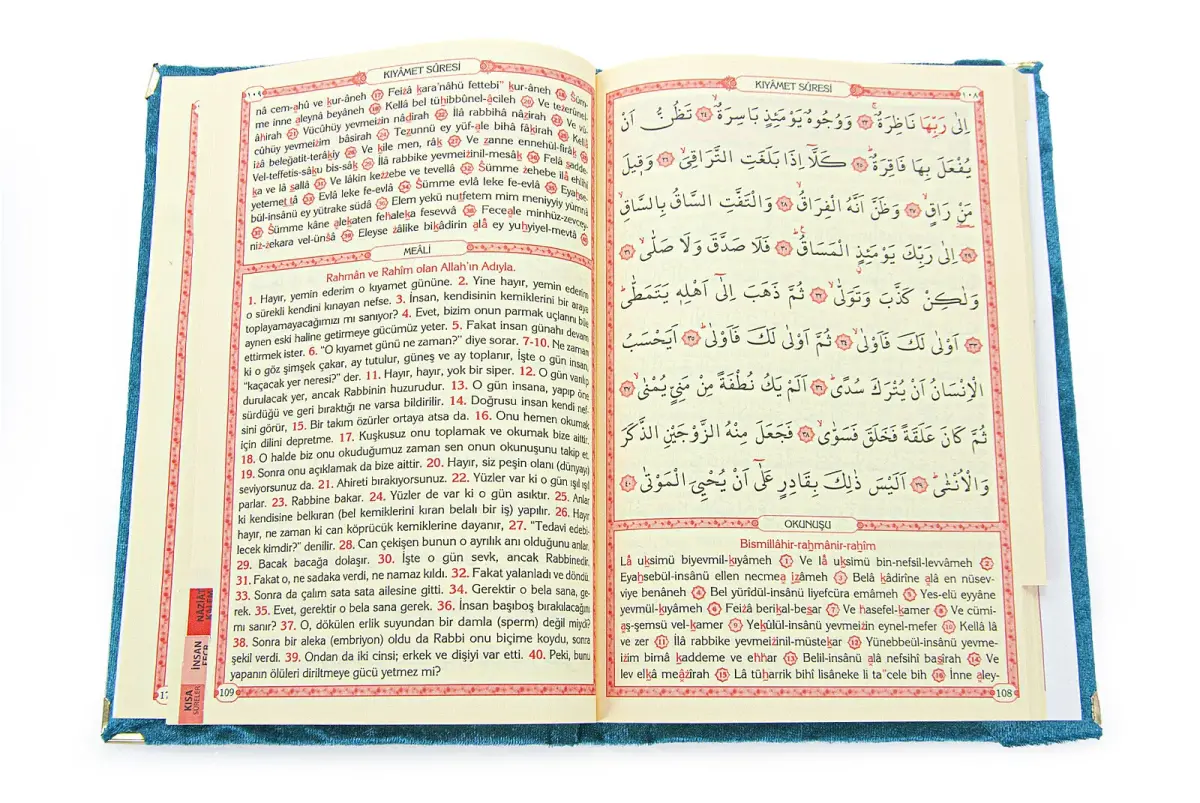 KIYÂMET SÛRESİ
١٠٨
اِلٰى رَبِّهَا نَاظِرَةٌۚ ﴿٢٣﴾ وَوُجُوهٌ يَوْمَئِذٍ بَاسِرَةٌۙ ﴿٢٤﴾ تَظُنُّ اَنْ
يُفْعَلَ بِهَا فَاقِرَةٌۜ ﴿٢٥﴾ كَلَّٓا اِذَا بَلَغَتِ التَّرَاقِيَۙ ﴿٢٦﴾ وَق۪يلَ
مَنْ رَاقٍۙ ﴿٢٧﴾ وَظَنَّ اَنَّهُ الْفِرَاقُۙ ﴿٢٨﴾ وَالْتَفَّتِ السَّاقُ بِالسَّاقِۙ
﴿٢٩﴾ اِلٰى رَبِّكَ يَوْمَئِذٍ الْمَسَاقُۜ ﴿٣٠﴾ فَلَا صَدَّقَ وَلَا صَلّٰىۙ ﴿٣١﴾
وَلٰكِنْ كَذَّبَ وَتَوَلّٰىۙ ﴿٣٢﴾ ثُمَّ ذَهَبَ اِلٰٓى اَهْلِه۪ يَتَمَطّٰىۜ
﴿٣٣﴾ اَوْلٰى لَكَ فَاَوْلٰىۙ ﴿٣٤﴾ ثُمَّ اَوْلٰى لَكَ فَاَوْلٰىۜ ﴿٣٥﴾ اَيَحْسَبُ
الْاِنْسَانُ اَنْ يُتْرَكَ سُدًىۜ ﴿٣٦﴾ اَلَمْ يَكُ نُطْفَةً مِنْ مَنِيٍّ يُمْنٰىۙ ﴿٣٧﴾
ثُمَّ كَانَ عَلَقَةً فَخَلَقَ فَسَوّٰىۙ ﴿٣٨﴾ فَجَعَلَ مِنْهُ الزَّوْجَيْنِ الذَّكَرَ
وَالْاُنْثٰىۜ ﴿٣٩﴾ اَلَيْسَ ذٰلِكَ بِقَادِرٍ عَلٰٓى اَنْ يُحْيِيَ الْمَوْتٰى ﴿٤٠﴾
OKUNUŞU
Bismillâhir-rahmânir-rahîm
Lâ uksimü biyevmil-kıyâmeh (1) Ve lâ uksimü bin-nefsil-levvâmeh (2)
Eyahsebül-insânü ellen necmea izâmeh (3) Belâ kâdirîne alâ en nüsev-
viye benâneh (4) Bel yürîdül-insânü liyefcüra emâmeh (5) Yes-elü eyyâne
yevmül-kıyâmeh (6) Feizâ berikal-besar (7) Ve hasefel-kamer (8) Ve cümi-
aş-şemsü vel-kamer (9) Yekûlül-insânü yevmeizin eynel-mefer (10) Kellâ lâ
ve zer (11) İlâ rabbike yevmeizinil-müstekar (12) Yünebbeül-insânü yevme-
izim bimâ kaddeme ve ehhar (13) Belil-insânü alâ nefsihî basîrah (14) Ve
lev elkâ meâzîrah (15) Lâ tüharrik bihî lisâneke li ta"cele bih (16) İnne aley-
108
KIYÂMET SÛRESİ
١٠٩
nâ cem-ahû ve kur-âneh (17) Feizâ kara'nâhü fettebi" kur-âneh (18) Süm-
me inne aleynâ beyâneh (19) Kellâ bel tühibbûnel-âcileh (20) Ve tezerûnel-
âhirah (21) Vücûhüy yevmeizin nâdirah (22) İlâ rabbihâ nâzirah (23) Ve vü-
cûhüy yevmeizim bâsirah (24) Tezunnü ey yüf-ale bihâ fâkirah (25) Kellâ
izâ beleğatit-terâkîy (26) Ve kîle men, râk (27) Ve zanne ennehül-firâk (28)
Vel-teffetis-sâku bis-sâk (29) İlâ rabbike yevmeizinil-mesâk (30) Felâ sadde-
ka ve lâ sallâ (31) Ve lâkin kezzebe ve tevellâ (32) Sümme zehebe ilâ ehlihî
yetemettâ (33) Evlâ leke fe-evlâ (34) Sümme evlâ leke fe-evlâ (35) Eyahse-
bül-insânü ey yütrake südâ (36) Elem yekü nutfetem mim meniyyiy yümnâ
(37) Sümme kâne alekaten fehaleka fesevvâ (38) Feceale minhüz-zevcey-
niz-zekara vel-ünsâ (39) Eleyse zâlike bikâdirin alâ ey yuhyiyel-mevtâ (40)
MEÂLİ
Rahmân ve Rahîm olan Allah'ın Adıyla.
1. Hayır, yemin ederim o kıyamet gününe. 2. Yine hayır, yemin ederim
o sürekli kendini kınayan nefse. 3. İnsan, kendisinin kemiklerini bir araya
toplayamayacağımızı mı sanıyor? 4. Evet, bizim onun parmak uçlarını bile
aynen eski haline getirmeye gücümüz yeter. 5. Fakat insan günahı devam
ettirmek ister. 6. "O kıyamet günü ne zaman?" diye sorar. 7-10. Ne zaman
ki o göz şimşek çakar, ay tutulur, güneş ve ay toplanır, İşte o gün insan,
"kaçacak yer neresi?" der. 11. Hayır, hayır, yok bir siper. 12. O gün varılıp
durulacak yer, ancak Rabbinin huzurudur. 13. O gün insana, yapıp öne
sürdüğü ve geri bıraktığı ne varsa bildirilir. 14. Doğrusu insan kendi nef-
sini görür, 15. Bir takım özürler ortaya atsa da. 16. Onu hemen okumak
için dilini depretme. 17. Kuşkusuz onu toplamak ve okumak bize aittir.
18. O halde biz onu okuduğumuz zaman sen onun okunuşunu takip et.
19. Sonra onu açıklamak da bize aittir. 20. Hayır, siz peşin olanı (dünyayı)
seviyorsunuz da. 21. Ahireti bırakıyorsunuz. 22. Yüzler var ki o gün ışıl ışıl
parlar. 23. Rabbine bakar. 24. Yüzler de var ki o gün asıktır. 25. Anlar
ki kendisine belkıran (bel kemiklerini kıran belalı bir iş) yapılır. 26. Hayır
hayır, ne zaman ki can köprücük kemiklerine dayanır, 27. "Tedavi edebi-
lecek kimdir?" denilir. 28. Can çekişen bunun o ayrılık anı olduğunu anlar.
29. Bacak bacağa dolaşır. 30. İşte o gün sevk, ancak Rabbinedir.
31. Fakat o, ne sadaka verdi, ne namaz kıldı. 32. Fakat yalanladı ve döndü.
33. Sonra da çalım sata sata ailesine gitti. 34. Gerektir o bela sana, ge-
rek. 35. Evet, gerektir o bela sana gerek. 36. İnsan başıboş bırakılacağını
mı sanır? 37. O, dökülen erlik suyundan bir damla (sperm) değil miydi?
38. Sonra bir aleka (embriyon) oldu da Rabbi onu biçime koydu, sonra
şekil verdi. 39. Ondan da iki cinsi; erkek ve dişiyi var etti. 40. Peki, bunu
yapanın ölüleri diriltmeye gücü yetmez mi?
109
17
NÂZİÂT
KALEM
İNSAN
FECR
KISA
SÛRELER